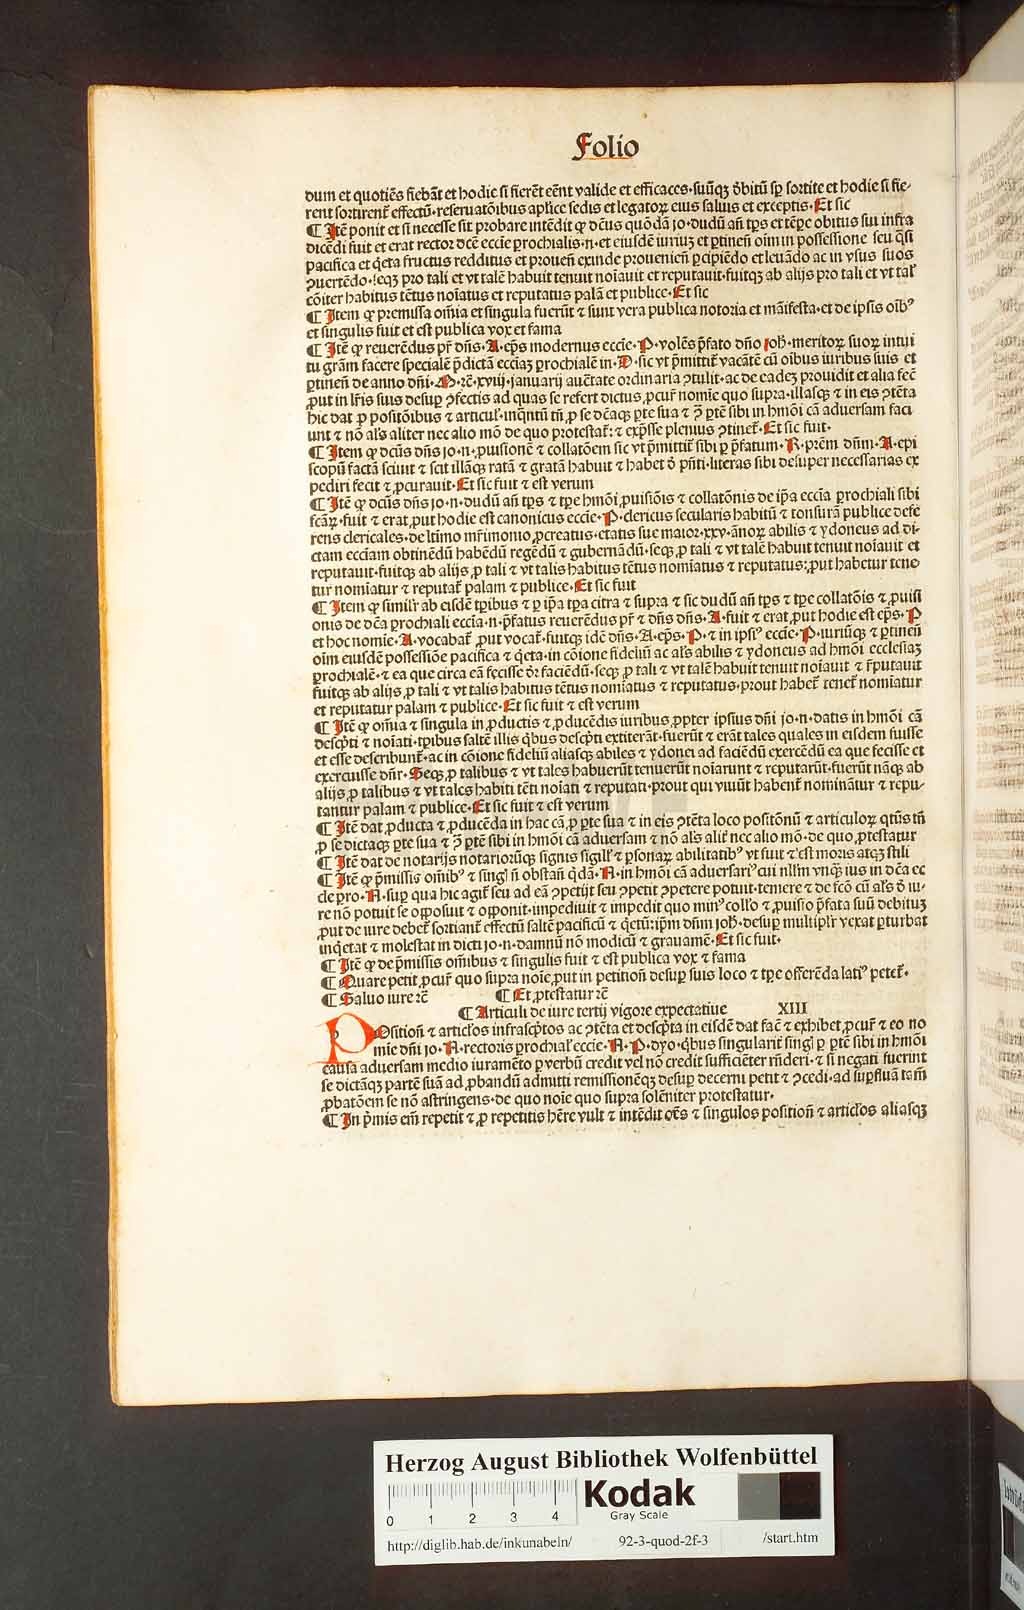 Folio
dum et quotiẽs fiebãt et hodie si fierẽt eẽnt valide et efficaces·suũqꝫ ꝺ̃bitũ sp̱ sortite et hodie si fie⸗
rent sortirent̃ effectũ·reseruatõibus apl̃ice sedis et legatoꝝ eius saluis et exceptis·Et sic
¶ Itẽ ponit et si necesse sit probare intẽdit ꝙ dc̃us quõdã jo·dudũ añ tp̱s et tẽpe obitus sui infra
dicẽdi fuit et erat rector dcẽ eccĩe ꝑrochialis·n·et eiusdẽ iuriuꝫ et ꝑtineñ oĩm in possessione seu q̃si
pacifica et q̃eta fructus redditus et prouen̄ exinde prouenien̄ ꝑcipiẽdo et leuãdo ac in vsus suos
ꝯuertẽdo·seqꝫ pro tali et vt talẽ habuit tenuit noĩauit et reputauit·fuitqꝫ ab alijs pro tali et vt tal̃
cõiter habitus tẽtus noĩatus et reputatus palã et publice·Et sic
¶ Item ꝙ premissa om̃ia et singula fuerũt ⁊ sunt vera publica notoria et mãifesta·et de ipsis oĩbꝰ
et singulis fuit et est publica vox et fama
¶ Itẽ ꝙ reuerẽdus pr̃ dñs·A·ep̃s modernus eccĩe·P·volẽs p̃fato dño joh̃·meritoꝝ suoꝝ intui
tu grãm facere specialẽ p̃dictã eccĩaꝫ ꝑrochialẽ in·D·sic vt p̃mittit̃ vacãtẽ cũ oĩbus iuribus suis et
ꝑtineñ de anno dñi·M·rẽ·xvij·januarij auc̃tate ordinaria ꝯtulit·ac de eadeꝫ prouidit et alia fec̃
ꝓut in lr̃is suis desup̱ ꝯfectis ad quas se refert dictus ꝓcur̃ nomĩe quo supra·illasqꝫ ⁊ in eis ꝯtẽta
hic dat ꝓ positõibus ⁊ articul̃·inq̃ntũ tñ ꝓ se dc̃aqꝫ ꝑte sua ⁊ ꝯ̃ ꝑtẽ sibi in hmõi cã aduersam faci
unt ⁊ nõ al̃s aliter nec alio mõ de quo protestat̃: ⁊ exp̃sse plenius ꝯtinet̃·Et sic fuit·
¶ Item ꝙ dc̃us dñs jo·n·ꝓuisionẽ ⁊ collatõem sic vt p̃mittit̃ sibi ꝑ p̃fatum·R·pr̃em dñm·A·epi
scopũ factã sciuit ⁊ scit illãqꝫ ratã ⁊ gratã habuit ⁊ habet ꝺ̃ p̃nti·literas sibi desuper necessarias ex
pediri fecit ⁊ ꝓcurauit·Et sic fuit ⁊ est verum
¶ Itẽ ꝙ dc̃us dñs jo·n·dudũ añ tp̱s ⁊ tp̱e hmõi ꝓuisiõis ⁊ collatõnis de ip̃a eccĩa ꝑrochiali sibi
fcãꝝ·fuit ⁊ erat ꝓut hodie est canonicus eccĩe·P·clericus secularis habitũ ⁊ tonsurã publice defe
rens clericales·de lt̃imo mr̃imonio ꝓcreatus·etatis sue maior·xxv·ãnoꝝ abilis ⁊ ydoneus ad di⸗
ctam eccĩam obtinẽdũ habẽdũ regẽdũ ⁊ gubernãdũ·seqꝫ ꝓ tali ⁊ vt talẽ habuit tenuit noĩauit et
reputauit·fuitqꝫ ab alijs ꝓ tali ⁊ vt talis habitus tẽtus nomĩatus ⁊ reputatus: ꝓut habetur tene
tur nomĩatur ⁊ reputat̃ palam ⁊ publice·Et sic fuit
¶ Item ꝙ simil̃r ab eisdẽ tp̱ibus ⁊ ꝑ ip̃a tp̱a citra ⁊ supra ⁊ sic dudũ añ tp̱s ⁊ tp̱e collatõis ⁊ ꝓuisi
onis de dc̃a ꝑrochiali eccĩa·n·p̃fatus reuerẽdus pr̃ ⁊ dñs dñs·A·fuit ⁊ erat ꝓut hodie est ep̃s·P
et hoc nomĩe·A·vocabat̃ ꝓut vocat̃·fuitqꝫ idẽ dñs·A·ep̃s·P·⁊ in ipsiꝰ eccĩe·P·iuriũqꝫ ⁊ ꝑtineñ
oĩm eiusdẽ possessiõe pacifica ⁊ q̃eta·in cõione fideliũ ac al̃s abilis ⁊ ydoneus ad hmõi ecclesiaꝫ
ꝑrochialẽ·⁊ ea que circa eã fecisse ꝺ̃r faciẽdũ·seqꝫ ꝓ tali ⁊ vt talẽ habuit tenuit noĩauit ⁊ r̃putauit
fuitqꝫ ab alijs ꝓ tali ⁊ vt talis habitus tẽtus nomĩatus ⁊ reputatus·prout habet̃ tenet̃ nomĩatur
et reputatur palam ⁊ publice·Et sic fuit ⁊ est verum
¶ Itẽ ꝙ om̃ia ⁊ singula in ꝓductis ⁊ ꝓducẽdis iuribus ꝓpter ipsius dñi jo·n·datis in hmõi cã
descp̃ti ⁊ noĩati·tp̱ibus saltẽ illis q̃bus descp̃ti extiterãt·fuerũt ⁊ erãt tales quales in eisdem fuisse
et esse describunt̃·ac in cõione fideliũ aliasqꝫ abiles ⁊ ydonei ad faciẽdũ exercẽdũ ea que fecisse et
exercuisse dñr·Seqꝫ ꝓ talibus ⁊ vt tales habuerũt tenuerũt noĩarunt ⁊ reputarũt·fuerũt nãqꝫ ab
alijs ꝓ talibus ⁊ vt tales habiti tẽti noĩati ⁊ reputati·prout qui viuũt habent̃ nominãtur ⁊ repu⸗
tantur palam ⁊ publice·Et sic fuit ⁊ est verum
¶ Itẽ dat ꝓducta ⁊ ꝓducẽda in hac cã ꝓ ꝑte sua ⁊ in eis ꝯtẽta loco positõnũ ⁊ articuloꝝ qtũs tñ
ꝓ se dictaqꝫ ꝑte sua ⁊ ꝯ̃ ꝑtẽ sibi in hmõi cã aduersam ⁊ nõ al̃s alit̃ nec alio mõ·de quo ꝓtestatur
¶ Itẽ dat de notarijs notariorũqꝫ signis sigill̃ ⁊ ꝑsonaꝝ abilitatibꝰ vt fuit ⁊ est moris atqꝫ stili
¶ Itẽ ꝙ p̃missis om̃ibꝰ ⁊ singl̃ ñ obstañ q̃dã·N·in hmõi cã aduersariꝰ cui nl̃lm vnqꝫ ius in dc̃a ec
cle pro·N·sup̱ qua hic agit̃ seu ad eã ꝯpetijt seu ꝯpetit ꝯpetere potuit·temere ⁊ de fcõ cũ al̃s ꝺ̃ iu⸗
re nõ potuit se opposuit ⁊ opponit·impediuit ⁊ impedit quo minꝰ coll̃o ⁊ ꝓuisio p̃fata suũ debituꝫ
ꝓut de iure debet̃ sortiant̃ effectũ saltẽ pacificũ ⁊ q̃etũ: ip̃m dñm joh̃·desup̱ multiplr̃ vexat ꝑturbat
inq̃etat ⁊ molestat in dicti jo·n·damnũ nõ modicũ ⁊ grauamẽ·Et sic fuit·
¶ Itẽ ꝙ de p̃missis om̃ibus ⁊ singulis fuit ⁊ est publica vox ⁊ fama
¶ Quare petit ꝓcur̃ quo supra noĩe ꝓut in petitioñ desup̱ suis loco ⁊ tp̱e offerẽda latiꝰ petet̃·
¶ Saluo iure rẽ ¶ Et ꝓtestatur rẽ
¶ Articuli de iure tertij vigore expectatiue XIII
POsitioñ ⁊ articl̃os infrascp̃tos ac ꝯtẽta et descp̃ta in eisdẽ dat fac̃ ⁊ exhibet ꝓcur̃ ⁊ eo no
mĩe dñi jo·N·rectoris ꝑrochial̃ eccĩe·N·P·dyo·q̃bus singularit̃ singl̃ ꝑ ꝑtẽ sibi in hmõi
causa aduersam medio iuramẽto ꝑ verbũ credit vel nõ credit sufficiẽter rñderi·⁊ si negati fuerint
se dictãqꝫ partẽ suã ad ꝓbandũ admitti remissionẽqꝫ desup̱ decerni petit ⁊ ꝯcedi·ad suꝑfluã tam̃
ꝓbatõem se nõ astringens·de quo noĩe quo supra solẽniter protestatur·
¶ In p̃mis em̃ repetit ⁊ ꝓ repetitis hẽre vult ⁊ intẽdit oẽs ⁊ singulos positioñ ⁊ articl̃os aliasqꝫ
Herzog August Bibliothek Wolfenbüttel
0 1 2 3 4
Kodak
Gray Scale
http://diglib.hab.de/inkunabeln/ 92-3-quod-2f-3 /start.htm